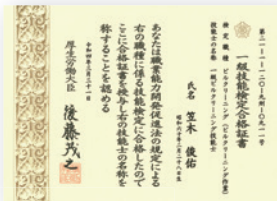 一級技能検定合格証書
第二一-一-一一二〇-一九-〇九一一号
検定職種 ビルクリーニング(ビルクリーニング作業)
技能士の名称 一級ビルクリーニング技能士
氏名 笠木 俊佑
昭和六十年二月二十八日生
あなたは職業能力開発促進法の規定による
右の職種に係る技能検定に合格したので
ここに合格証書を授与し右の技能士の名称を
称することを認める
令和四年三月十一日
厚生労働大臣 後藤茂之